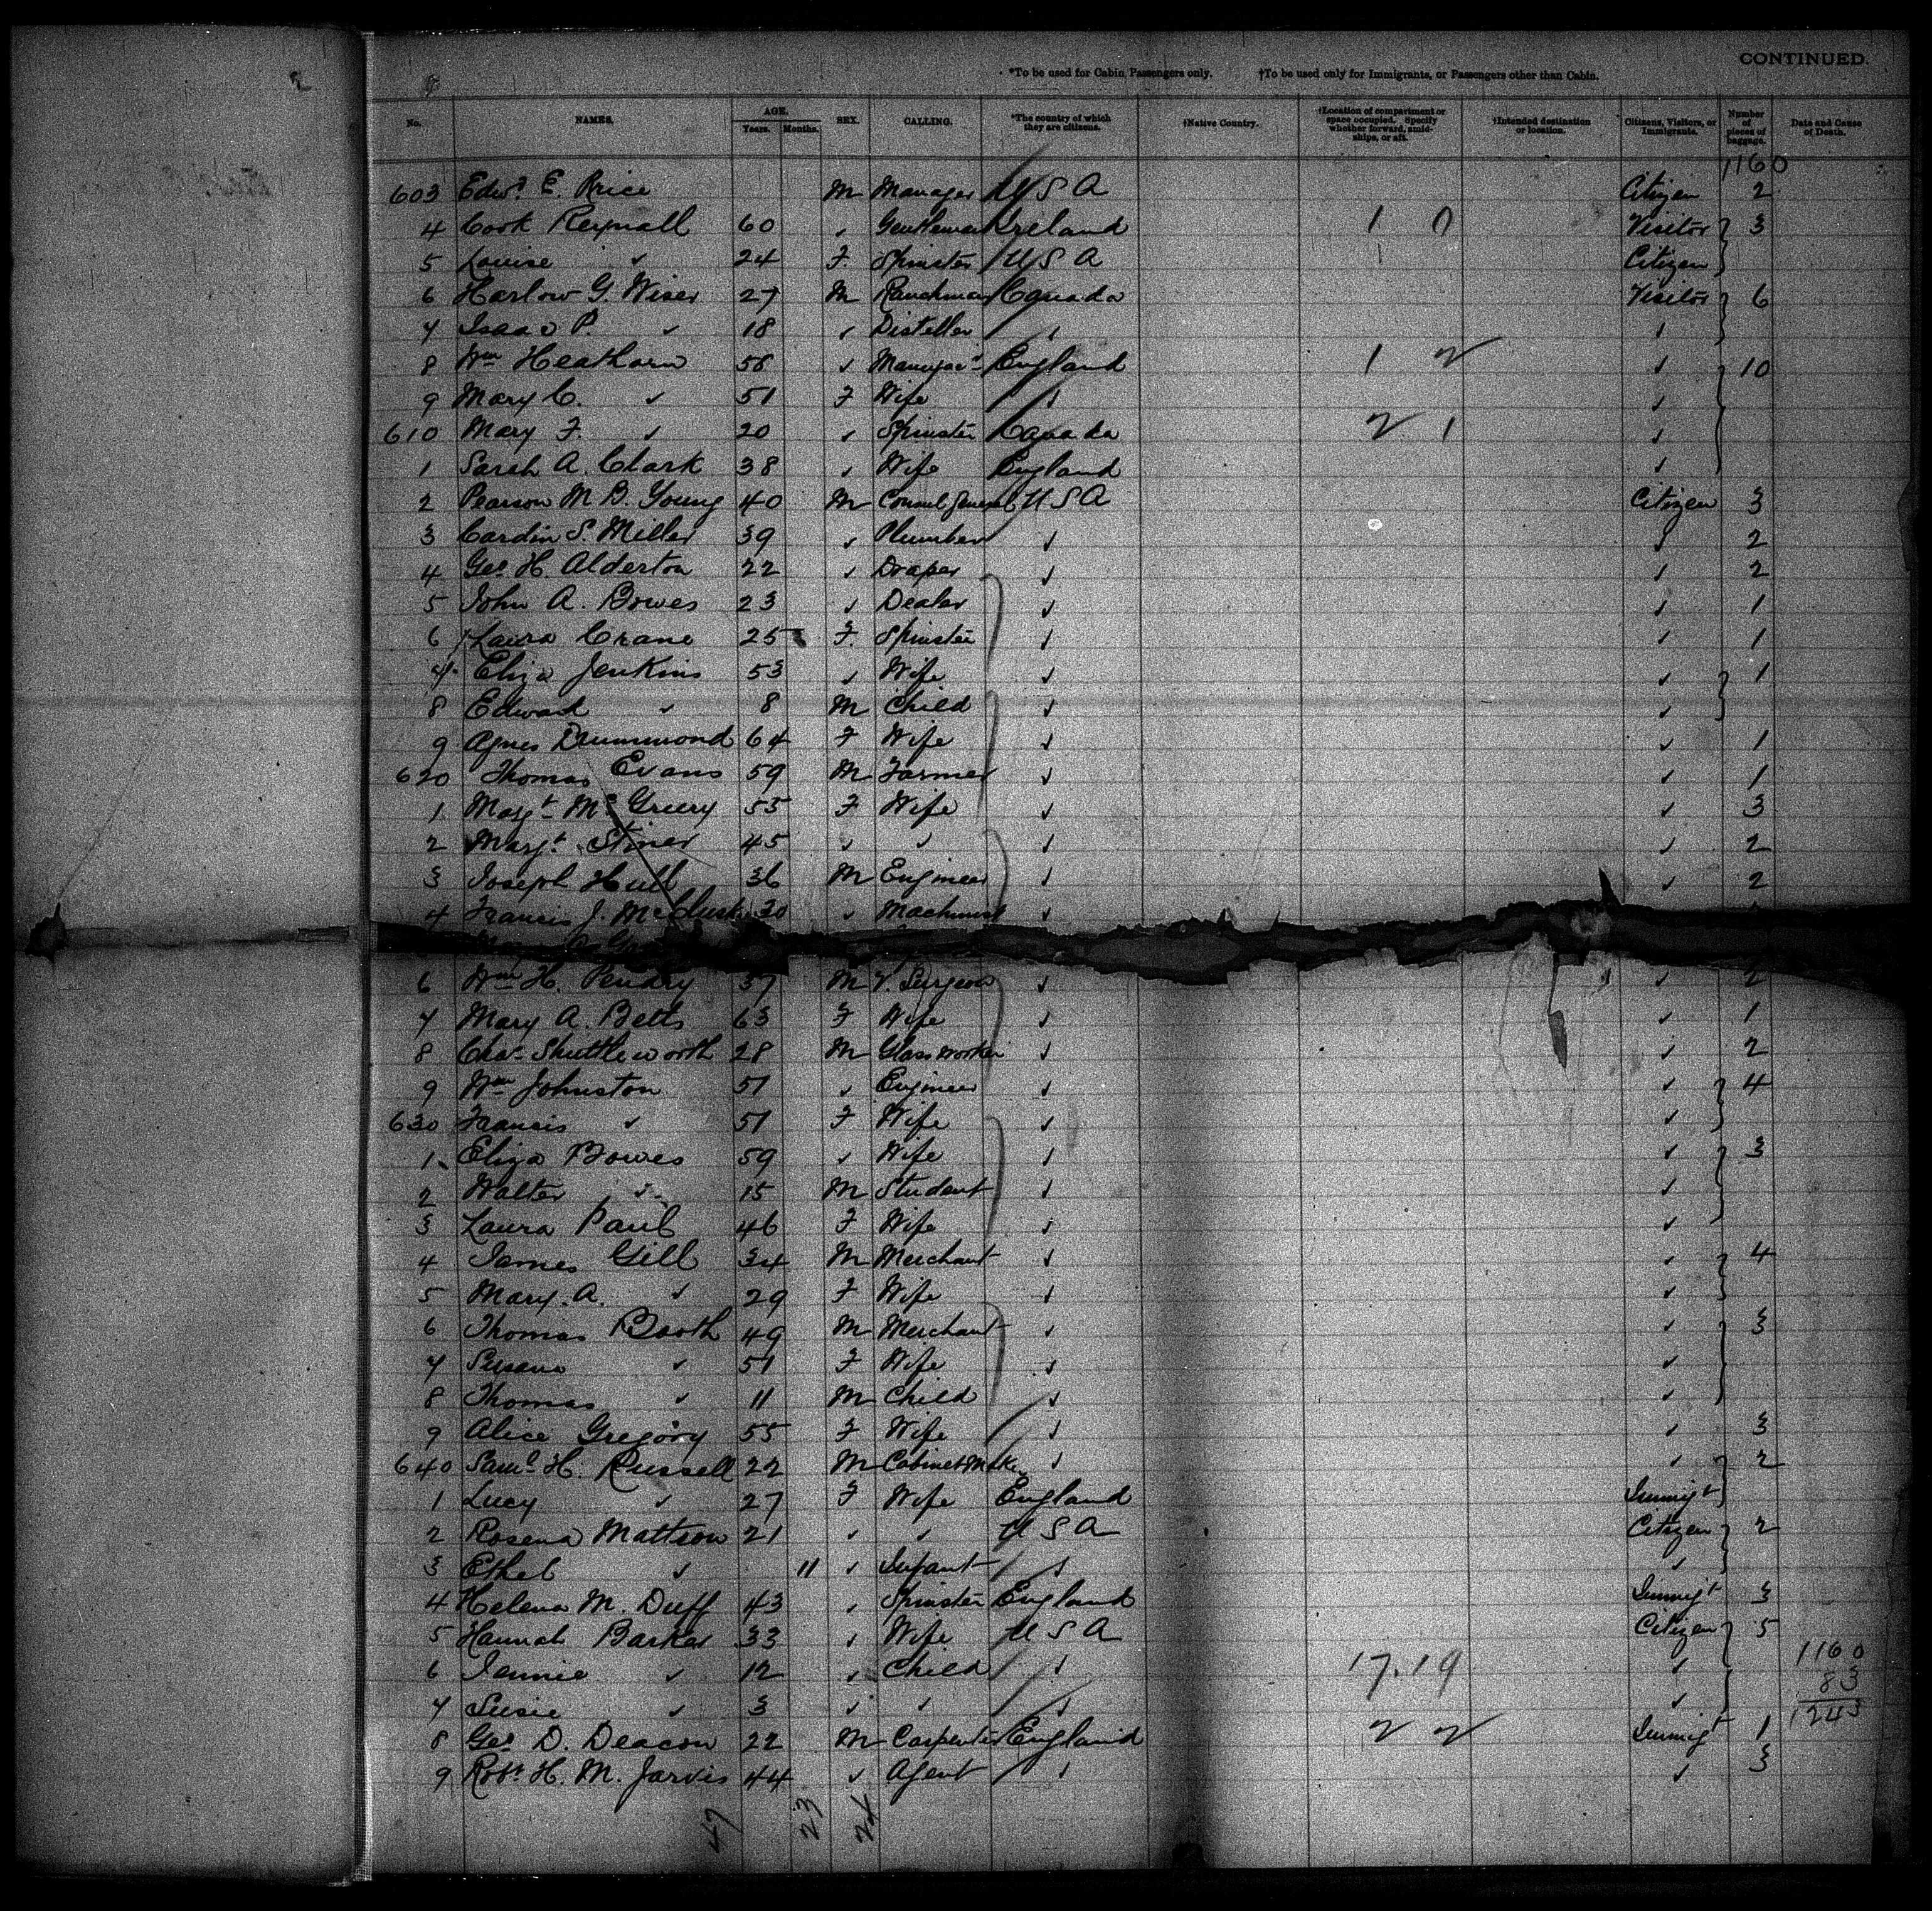 CONTINUED.
*To be used for Cabin Passengers only. †To be used only for Immigrants, or Passengers other than Cabin.
No. NAMES. AGE. Years. Months. SEX. CALLING. *The country of which they are citizens. †Native Country. †Location of compartment or space occupied. Specify whether forward, amidships, or aft. †Intended destination or location. Citizens, Visitors, or Immigrants. Number of pieces of baggage. Date and Cause of Death.
1160
603 Edwd E. Rice M Manager U S A Citizen 2
4 Cook Reynall 60 ✓ Gentleman Ireland 1 0 Visitor 3
5 Louise ✓ 24 F. Spinster U S A Citizen
6 Harlow G. Wiser 27 M Ranchman Canada Visitor 6
7 Isaac P. ✓ 18 ✓ Distiller ✓ ✓
8 Wm Heathorn 58 ✓ England 1 2 ✓ 10
9 Mary C. ✓ 51 F Wife ✓ ✓
610 Mary F. ✓ 20 ✓ Spinster Canada 2 1 ✓
1 Sarah A. Clark 38 ✓ Wife England ✓
2 Pearson M B. Young 40 M Consul General U S A Citizen 3
3 Cardin S. Miller 39 ✓ Plumber ✓ ✓ 2
4 Geo H. Alderton 22 ✓ Draper ✓ ✓ 2
5 John A. Bowes 23 ✓ Dealer ✓ ✓ 1
6 Laura Crane 25 F. Spinster ✓ ✓ 1
7 Eliza Jenkins 53 ✓ Wife ✓ ✓ 1
8 Edward ✓ 8 M Child ✓ ✓
9 Agnes Drummond 64 F Wife ✓ ✓ 1
620 Thomas Evans 59 M Farmer ✓ ✓ 1
1 Margt McGreery 55 F Wife ✓ ✓ 3
2 Margt Stiner 45 ✓ ✓ ✓ ✓ 2
3 Joseph Hull 36 M Engineer ✓ ✓ 2
4 Francis J. 30 ✓ Machinist ✓
6 Wm H. Pendry 37 M V. Surgeon ✓ ✓ 2
7 Mary A. Betts 63 F Wife ✓ ✓ 1
8 Chas Shuttleworth 28 M Glass worker ✓ ✓ 2
9 Wm Johnston 51 ✓ Engineer ✓ ✓ 4
630 Francis ✓ 51 F Wife ✓ ✓
1 Eliza Bowes 59 ✓ Wife ✓ ✓ 3
2 Walter ✓ 15 M Student ✓ ✓
3 Laura Paul 46 F Wife ✓ ✓
4 James Gill 34 M Merchant ✓ ✓ 4
5 Mary A. ✓ 29 F Wife ✓ ✓
6 Thomas Booth 49 M Merchant ✓ ✓ 3
7 Susana ✓ 51 F Wife ✓ ✓
8 Thomas ✓ 11 M Child ✓ ✓
9 Alice Gregory 55 F Wife ✓ ✓ 3
640 Saml H. Russell 22 M Cabinet Maker ✓ ✓ 2
1 Lucy ✓ 27 F Wife England Immigt
2 Rosena Mattson 21 ✓ ✓ U S A Citizen 2
3 Ethel ✓ 11 ✓ Infant ✓ ✓
4 Helena M. Duff 43 ✓ Spinster England Immigt 3
5 Hannah Barker 33 ✓ Wife U S A Citizen 5
6 Jennie ✓ 12 ✓ Child ✓ 17.19 ✓
7 Susie ✓ 3 ✓ ✓ ✓ ✓
1160
83
1243
8 Geo D. Deacon 22 M Carpenter England 2 2 Immigt 1
9 Robt H. M. Jarvis 44 ✓ Agent ✓ ✓ 3
47 23 24